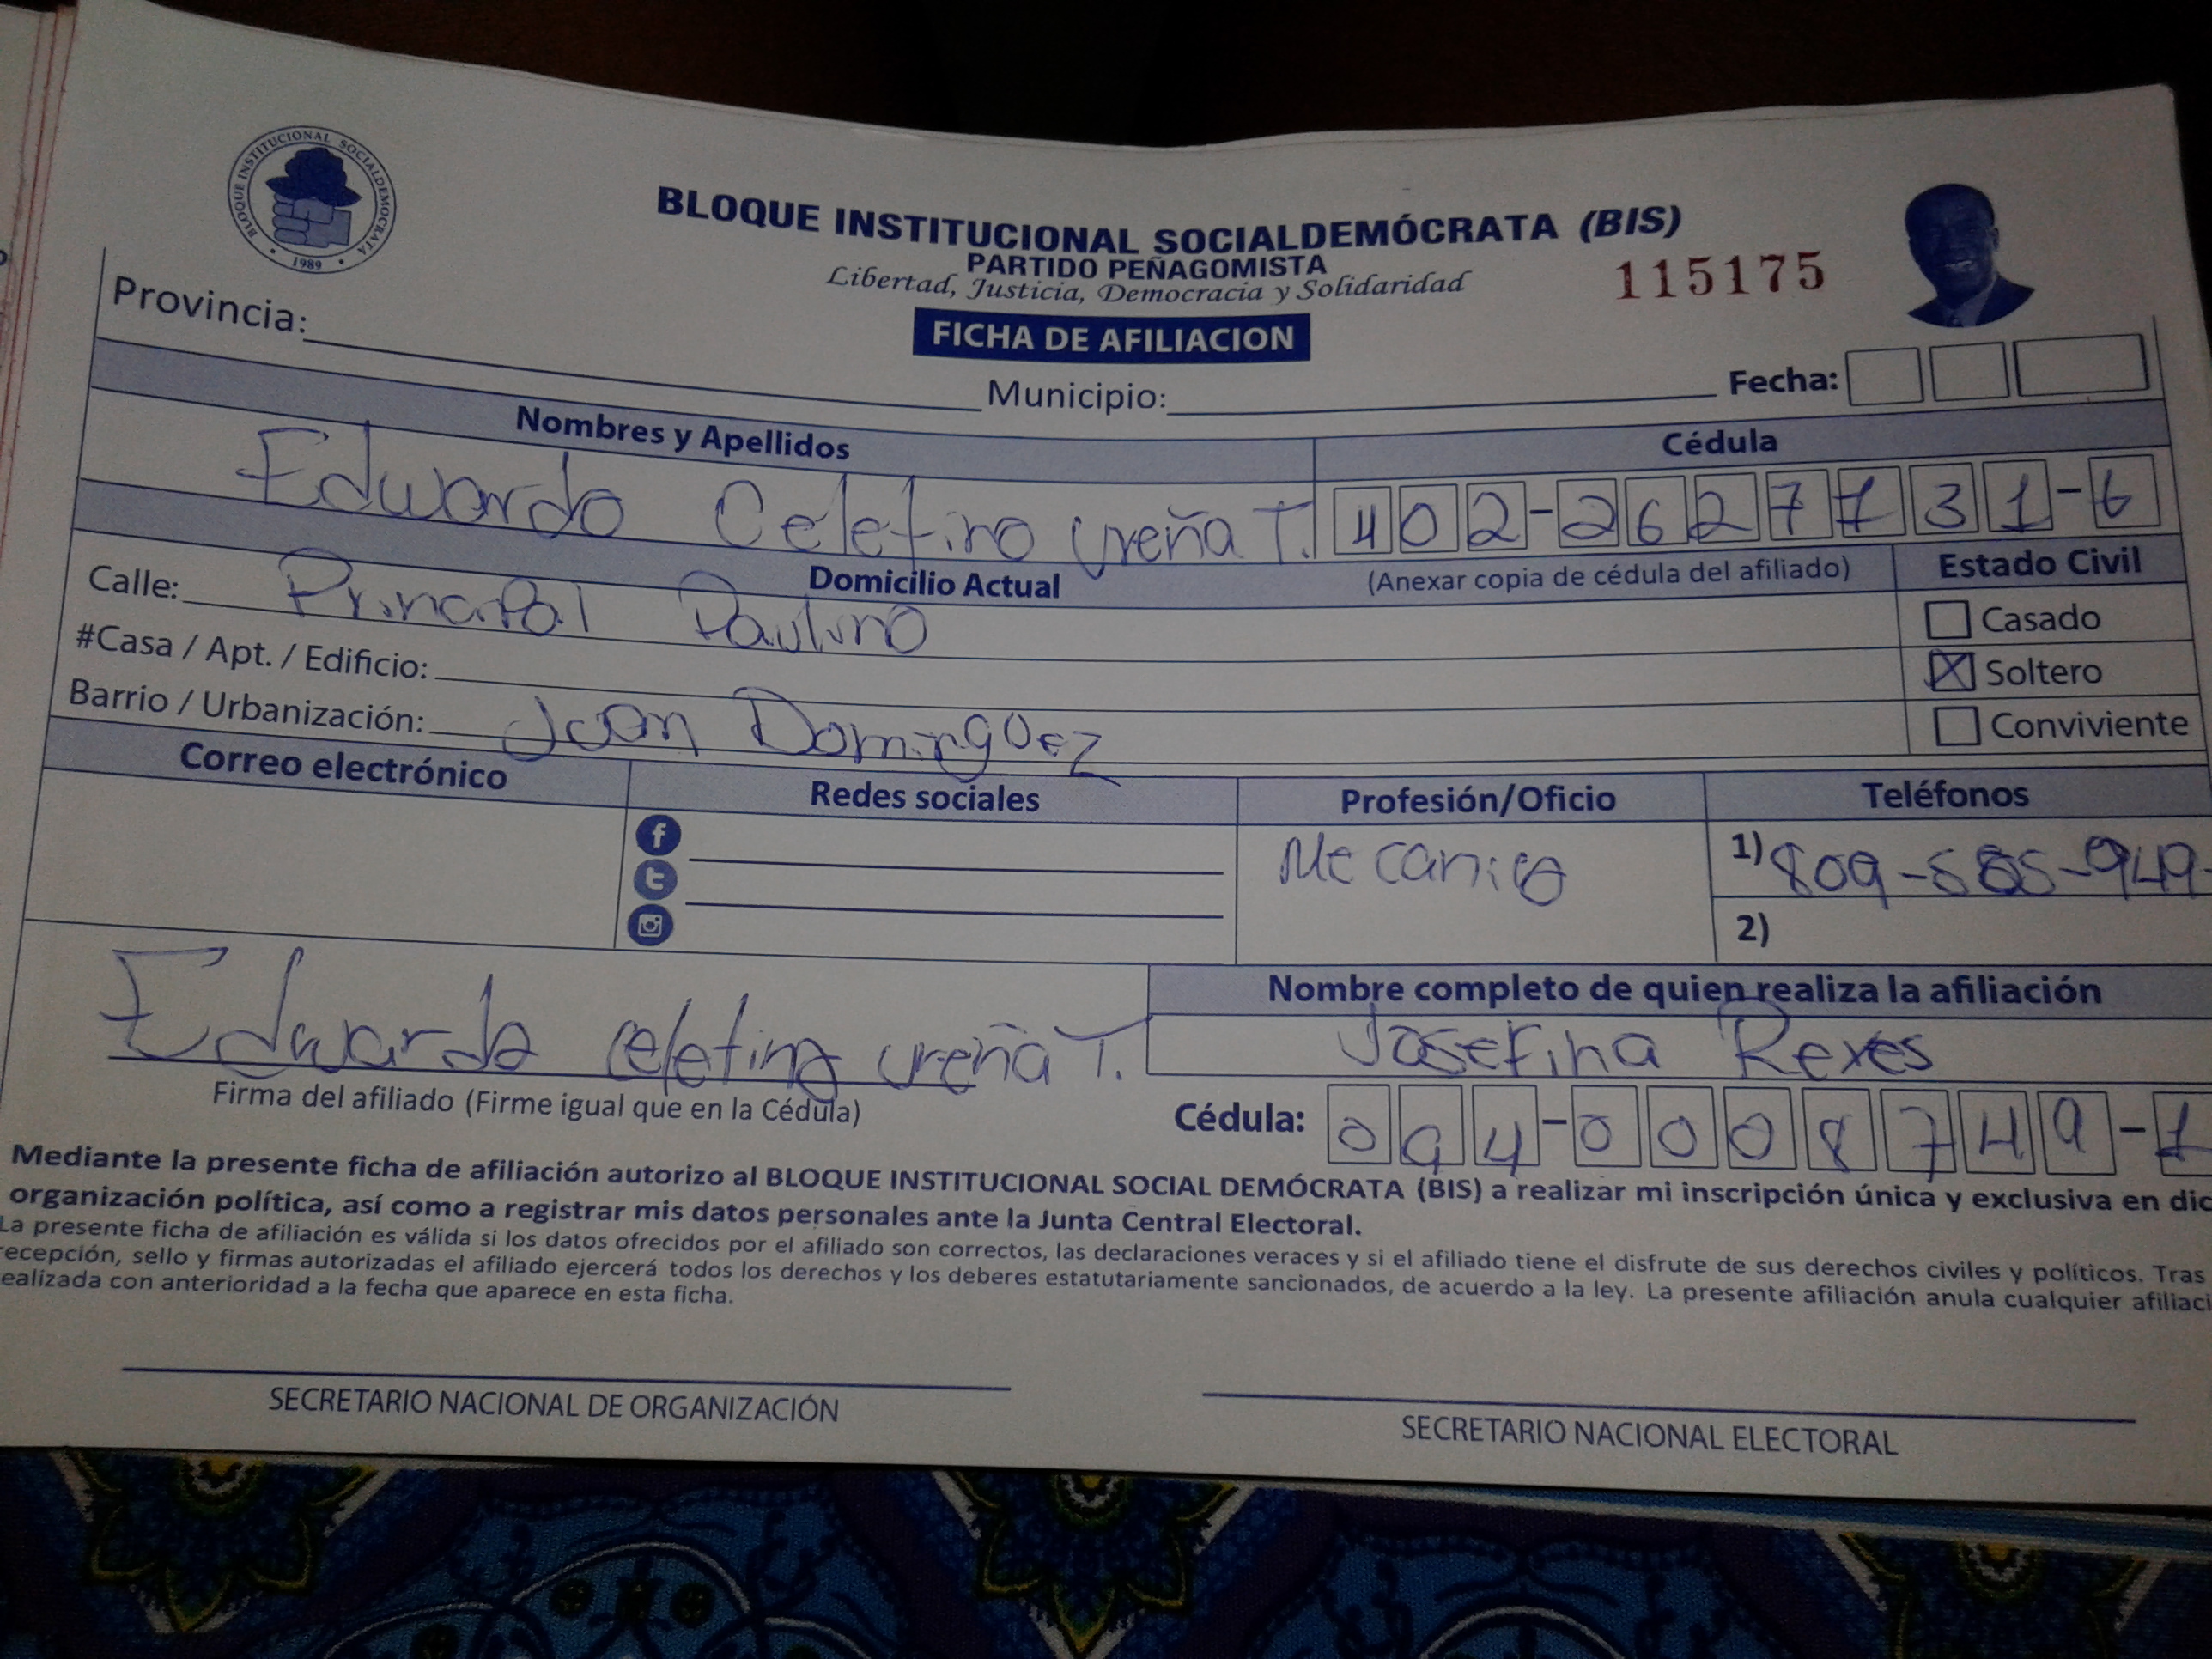 BLOQUE INSTITUCIONAL SOCIALDEMOCRATA
1989
BLOQUE INSTITUCIONAL SOCIALDEMÓCRATA (BIS)
PARTIDO PEÑAGOMISTA
Libertad, Justicia, Democracia y Solidaridad
115175
FICHA DE AFILIACION
Provincia:
Municipio:
Fecha:
Nombres y Apellidos
Cédula
Eduardo Celetino Ureña T.
402-2627731-6
Domicilio Actual
(Anexar copia de cédula del afiliado)
Estado Civil
Calle: Principal Paulino
Casado
#Casa / Apt. / Edificio:
Soltero
Barrio / Urbanización: Juan Dominguez
Conviviente
Correo electrónico
Redes sociales
Profesión/Oficio
Teléfonos
Mecanico
1) 809-585-949
2)
Eduardo Celetino Ureña T.
Firma del afiliado (Firme igual que en la Cédula)
Nombre completo de quien realiza la afiliación
Josefina Reyes
Cédula: 094-0008749-1
Mediante la presente ficha de afiliación autorizo al BLOQUE INSTITUCIONAL SOCIAL DEMÓCRATA (BIS) a realizar mi inscripción única y exclusiva en dic
organización política, así como a registrar mis datos personales ante la Junta Central Electoral.
La presente ficha de afiliación es válida si los datos ofrecidos por el afiliado son correctos, las declaraciones veraces y si el afiliado tiene el disfrute de sus derechos civiles y políticos. Tras
recepción, sello y firmas autorizadas el afiliado ejercerá todos los derechos y los deberes estatutariamente sancionados, de acuerdo a la ley. La presente afiliación anula cualquier afiliaci
ealizada con anterioridad a la fecha que aparece en esta ficha.
SECRETARIO NACIONAL DE ORGANIZACIÓN
SECRETARIO NACIONAL ELECTORAL